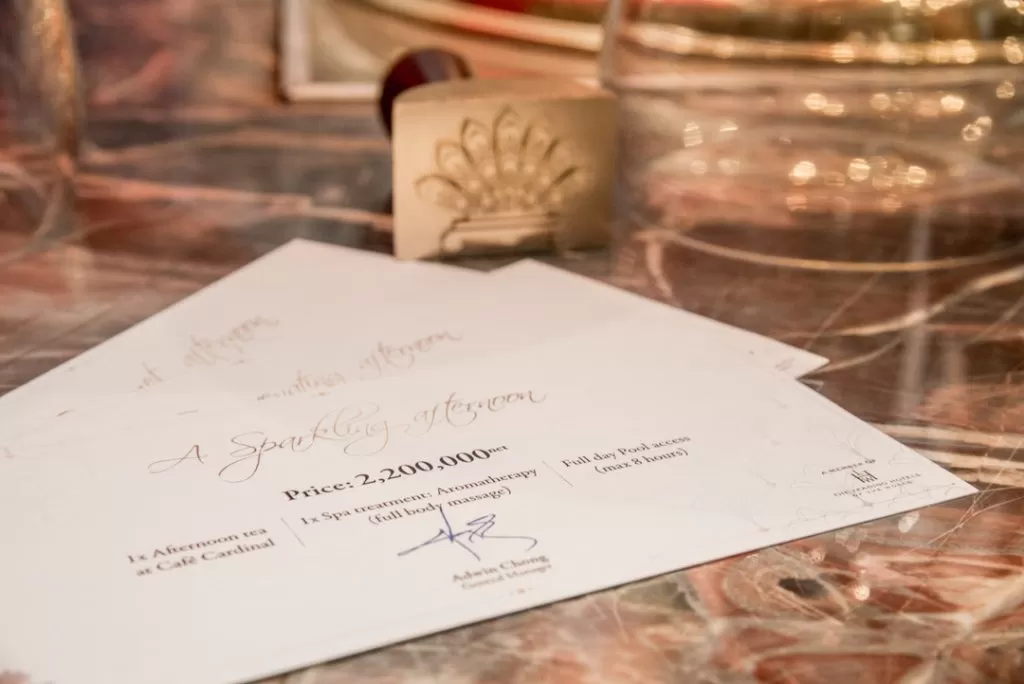 afternoon
afternoon
A Sparkling afternoon
Price: 2,200,000net
1x Afternoon tea
at Café Cardinal
1x Spa treatment: Aromatherapy
(full body massage)
Full day Pool access
(max 8 hours)
Adwin Chong
General Manager
A MEMBER OF
THE LEADING HOTELS
OF THE WORLD